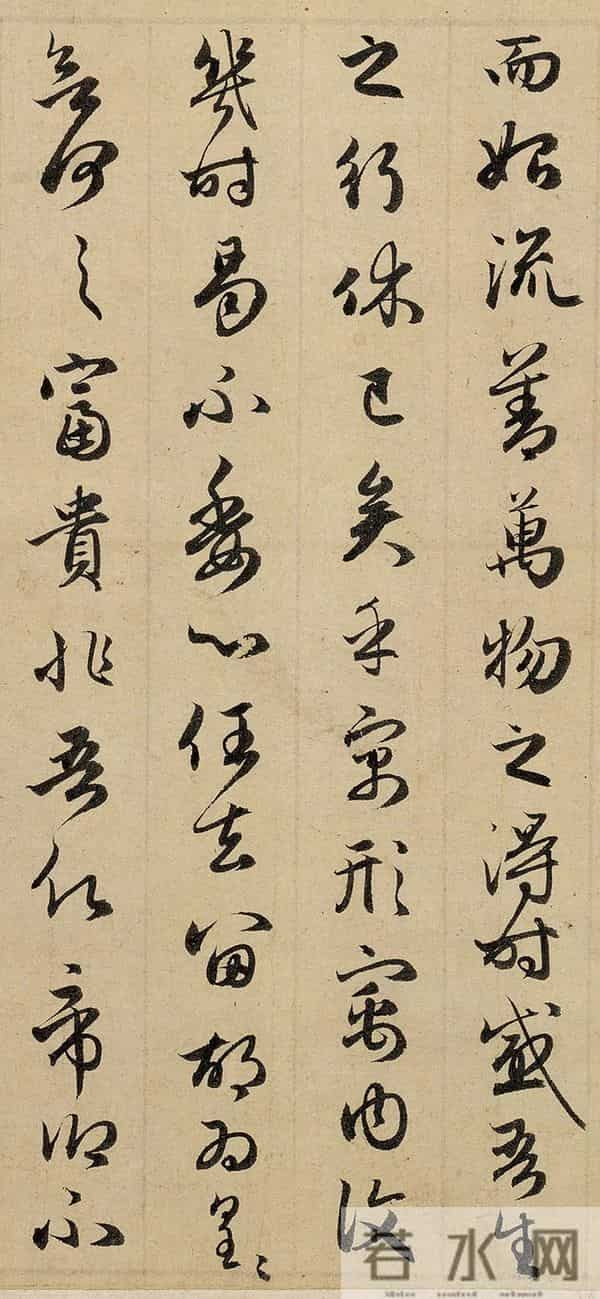 而始流善萬物之得時感吾生
之行休已矣乎寓形㝢内復
幾時曷不委心任去留胡為皇〻
何之富貴非吾願帝鄉不
若水网